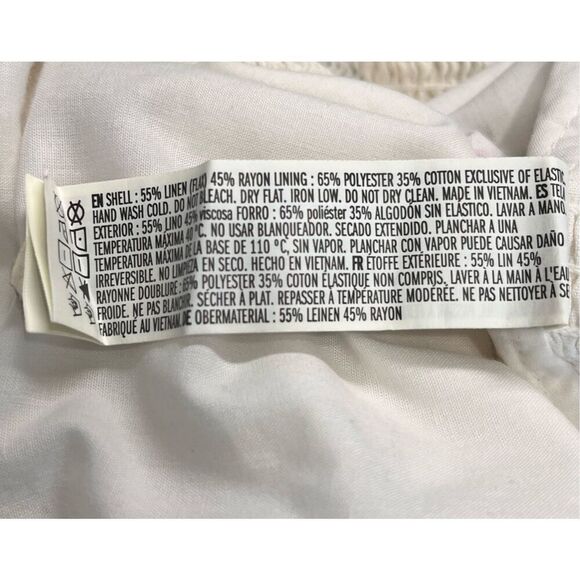 EN SHELL : 55% LINEN (FLAX) 45% RAYON LINING : 65% POLYESTER 35% COTTON EXCLUSIVE OF ELASTIC
HAND WASH COLD. DO NOT BLEACH. DRY FLAT. IRON LOW. DO NOT DRY CLEAN. MADE IN VIETNAM. ES TELA
EXTERIOR : 55% LINO 45% viscosa FORRO : 65% poliéster 35% ALGODÓN SIN ELÁSTICO. LAVAR A MANO,
TEMPERATURA MÁXIMA 40 ºC. NO USAR BLANQUEADOR. SECADO EXTENDIDO. PLANCHAR A UNA
TEMPERATURA MÁXIMA DE LA BASE DE 110 ºC, SIN VAPOR. PLANCHAR CON VAPOR PUEDE CAUSAR DAÑO
IRREVERSIBLE. NO LIMPIEZA EN SECO. HECHO EN VIETNAM. FR ÉTOFFE EXTÉRIEURE : 55% LIN 45%
RAYONNE DOUBLURE : 65% POLYESTER 35% COTON ÉLASTIQUE NON COMPRIS. LAVER À LA MAIN À L'EAU
FROIDE. NE PAS BLANCHIR. SÉCHER À PLAT. REPASSER À TEMPÉRATURE MODÉRÉE. NE PAS NETTOYER À SE
FABRIQUÉ AU VIETNAM. DE OBERMATERIAL : 55% LEINEN 45% RAYON